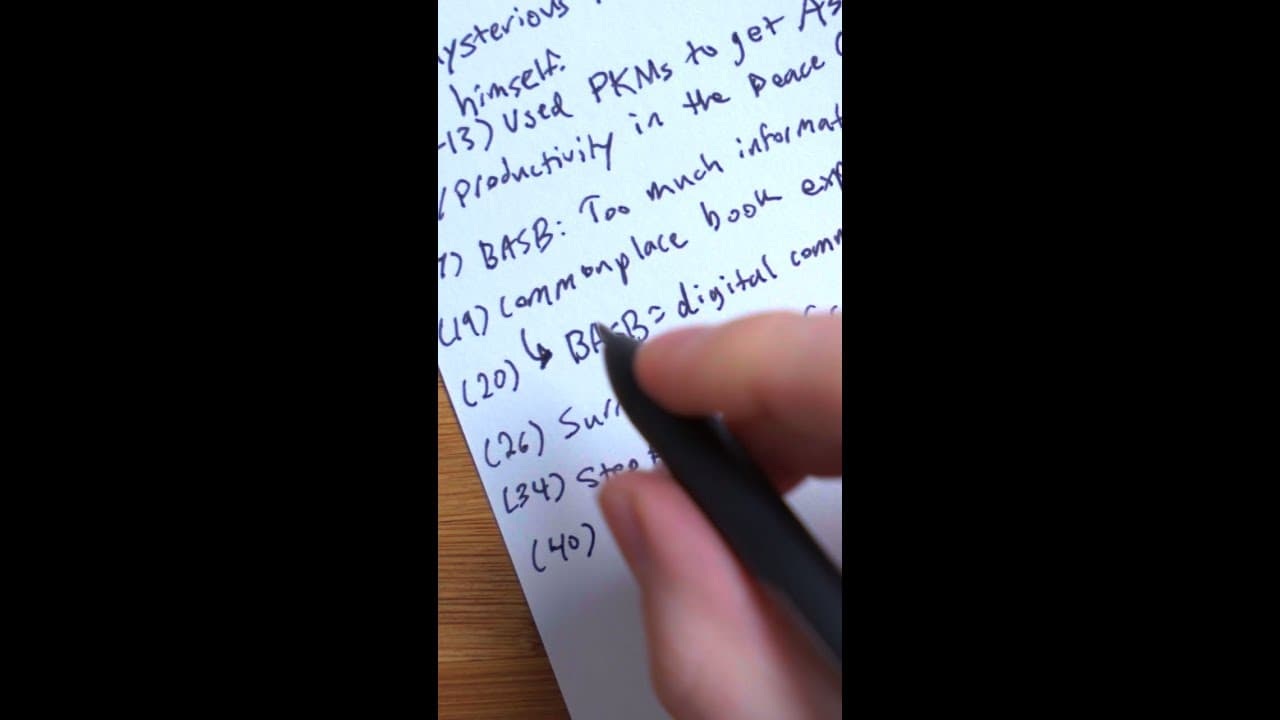 ysterious
himself.
-13) Used PKMs to get As
/productivity in the Peace C
7) BASB: Too much informat
(19) Commonplace book exp
(20) ↳ BASB = digital comm
(26) Surr
(34) Step
(40)